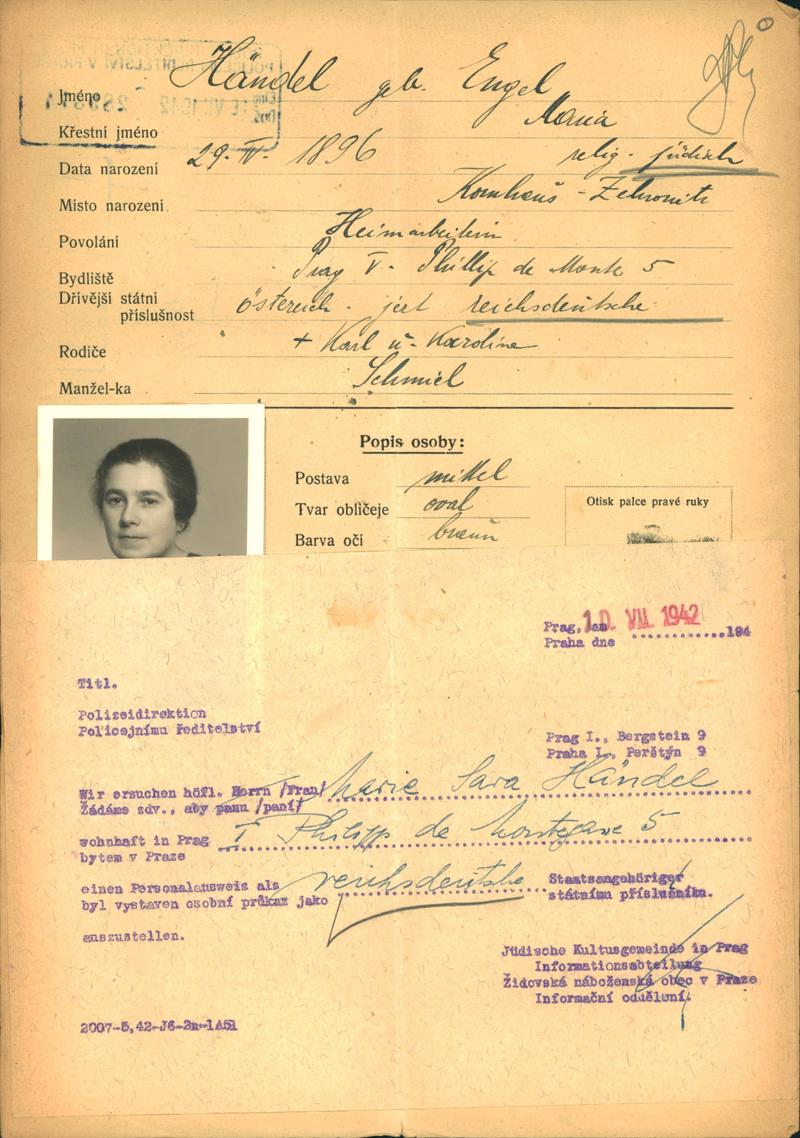 Jméno Händel geb. Engel
Křestní jméno Maria
Data narození 29. IV. 1896 relig. jüdisch
Místo narození
Povolání Heimarbeiterin
Bydliště Prag V. Phillip de Monte 5
Dřívější státní
příslušnost östereich. jezt reichsdeutsche
Rodiče + Karl u. Karoline
Manžel-ka Schmiel
Popis osoby:
Postava mittel
Tvar obličeje oval
Barva očí braun
Otisk palce pravé ruky
Prag, am 10. VII. 1942
Praha dne ............194
Titl.
Polizeidirektion
Policejnímu ředitelství
Prag I., Bergstein 9
Praha I., Perštýn 9
Wir ersuchen höfl. Herrn /Frau/ Marie Sara Händel
Žádáme zdv., aby panu /paní/
wohnhaft in Prag V Philipp de Montegasse 5
bytem v Praze
einen Personalausweis als reichsdeutsche Staatsangehöriger
byl vystaven osobní průkaz jako státnímu příslušníkm.
auszustellen.
Jüdische Kultusgemeinde in Prag
Informationsabteilung
Židovská náboženská obec v Praze
Informační oddělení.
2007-5,42-J6-2m-1A51